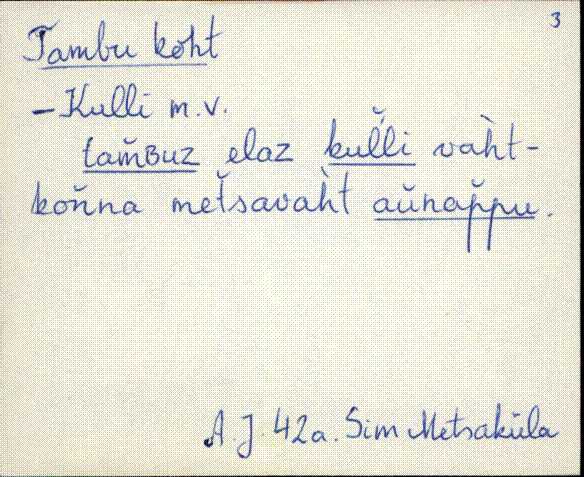 3
Tambu koht
– Kulli m.v.
tam̆ʙuz elaz kul̆li vah̀t-
kon̆na met̆savah̀t aŭnap̆pu.
A. J. 42a. Sim Metsaküla